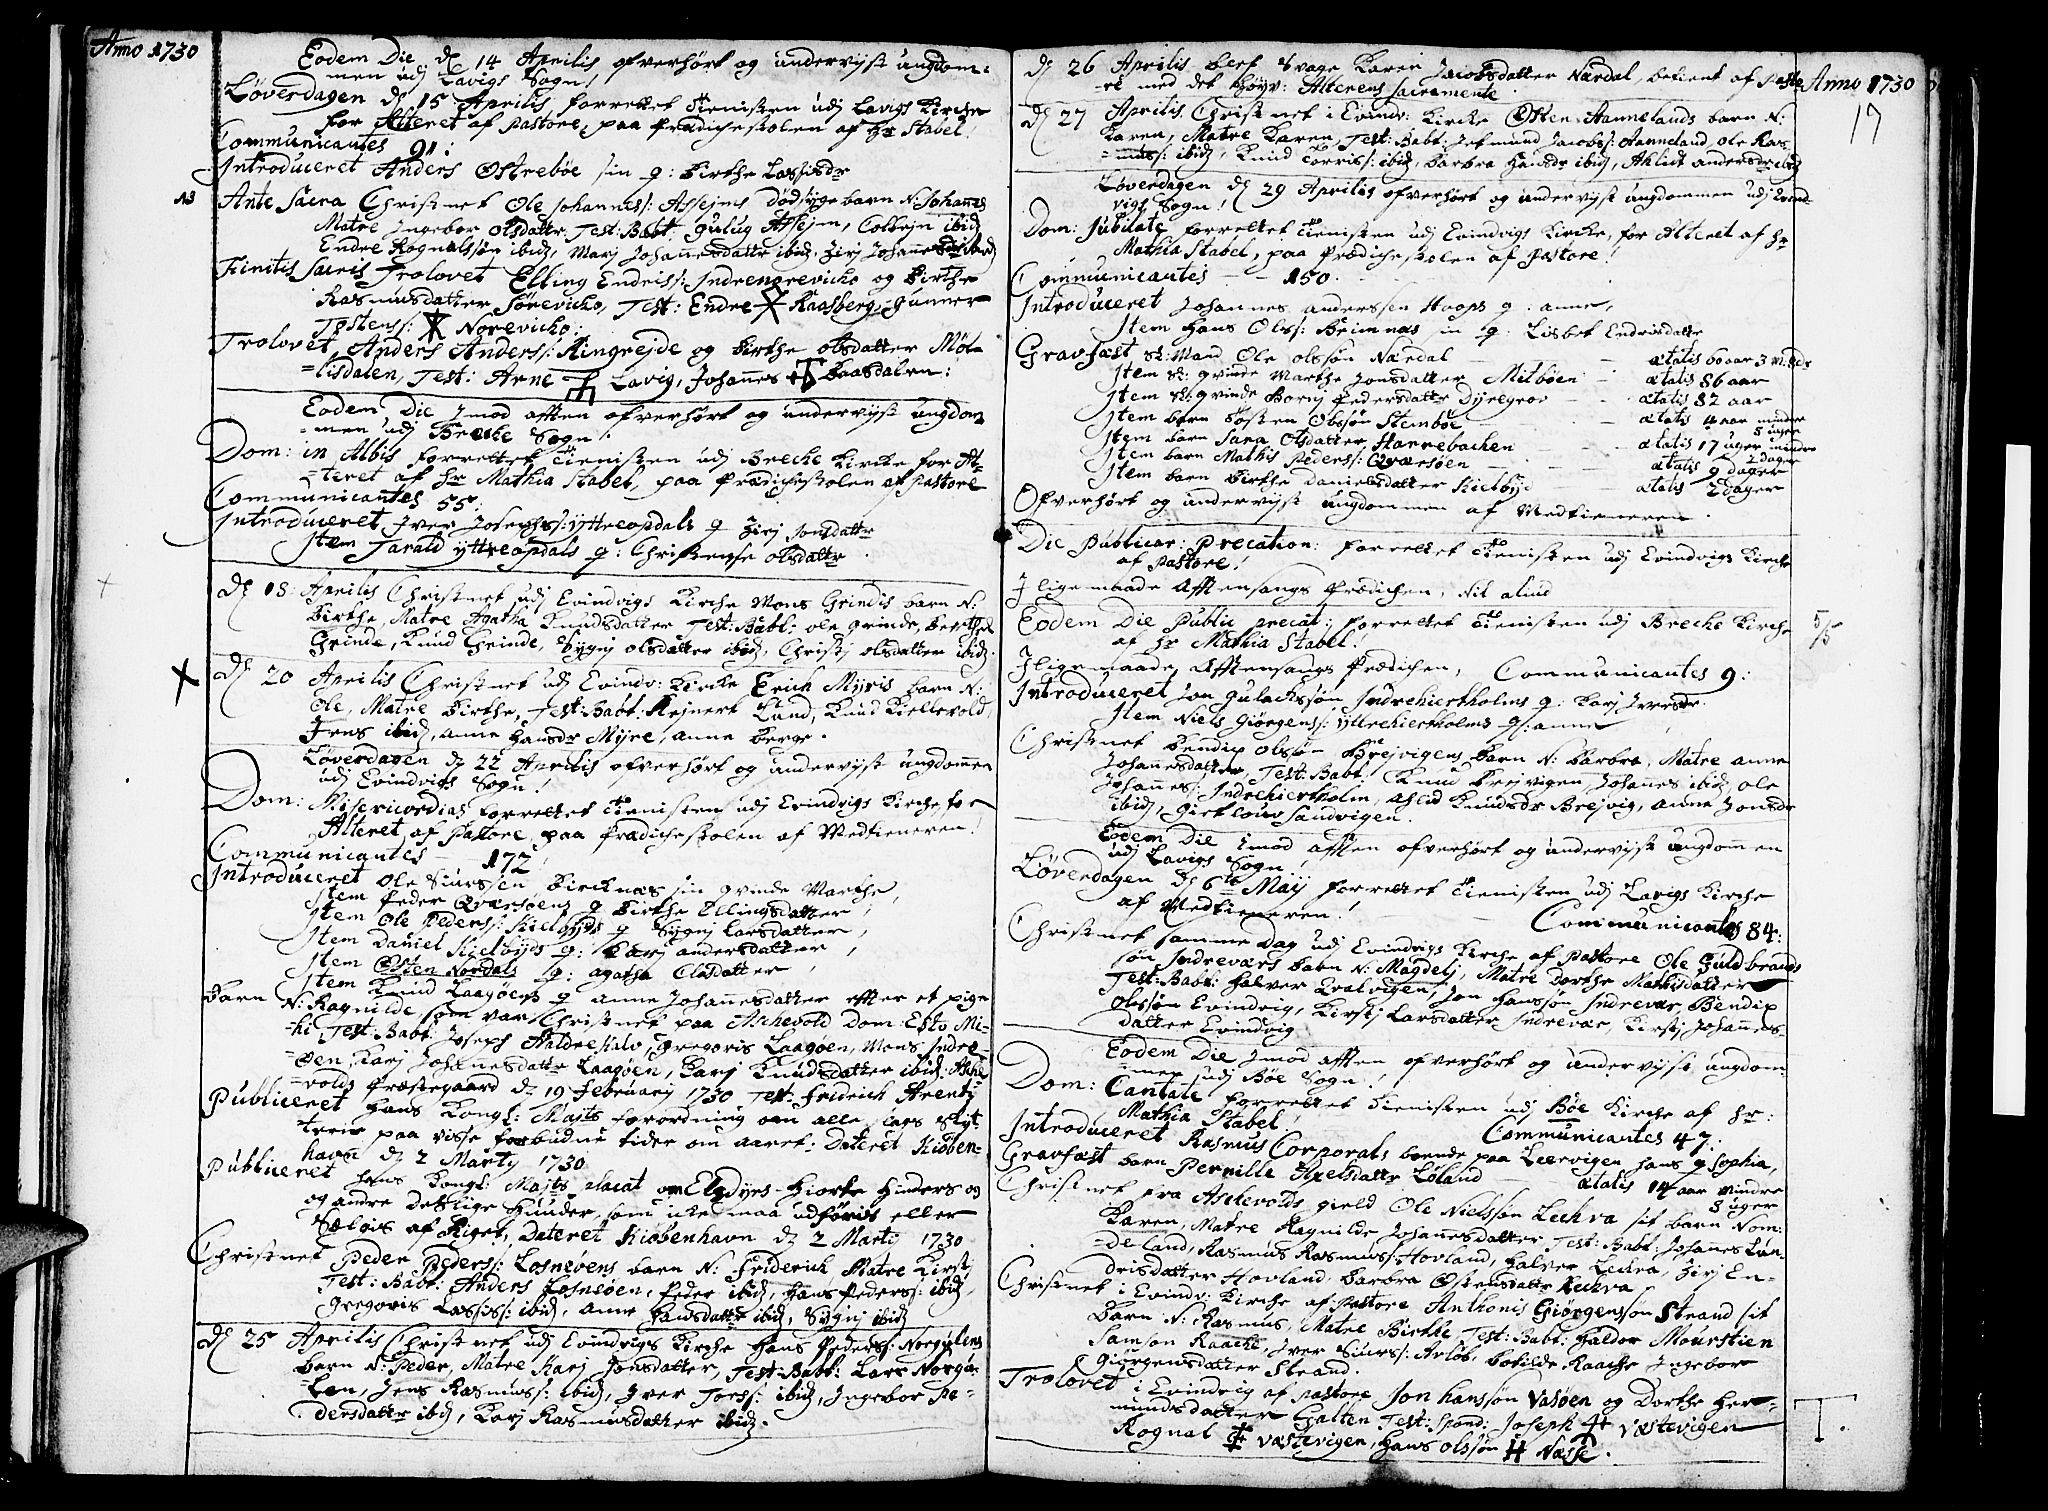 Anno 1730
Eodem Die d. 14 Aprilis ofverhört og undervijst ungdom-
men udj Lavigs Sogn!
Löverdagen d. 15 Aprilis forrettet Tienisten udj Lavigs Kirche
for Alteret af Pastore, paa Prædichestolen af Hr Stabel!
Communicantes 91:
Introduceret Anders Østrebøe sin q: Birthe Lassisdr
NB Ante Sacra Christnet Ole Johanness: Assejms dödsyge barn N: Johannes
Matre Ingebor Olsdattr, Test: Babt: Gulug Assejm, Colbejn ibid,
Endre Rognalssön ibid, Marj Johannesdatter ibid, Zirj Johannesdr ibid
Finitis Sacris Trolovet Elling Endriss: Indrenrevicho og Birthe
Rasmusdatter Sørevicho, Test: Endre Raasberg, Gunner
Tostens: Norevicho:
Trolovet Anders Anderss: Ringrejde og Birthe Olsdatter Möl-
=lisdalen, Test: Arne Lavig, Johannes Baasdalen:
Eodem Die Imod aften ofverhört og undervijst ungdom
=men udj Breche Sogn!
Dom: in Albis forrettet Tienisten udj Breche Kirche for Al-
=teret af Hr Mathia Stabel, paa Prædichestolen af Pastore
Communicantes 55:
Introduceret Iver Josephs: Yttreopdals q Zirj Jonsdattr
Item Tarald Yttreopdals q: Christense Olsdattr
d. 18: Aprilis Christnet udj Evindvigs Kirche Mons Grindis barn N:
Birthe, Matre Agatha Knudsdatter Test: Babt: Ole Grinde, Berthel
Grinde, Knud Grinde, Sygnj Olsdatter ibid, Christj Olsdatter ibid.
d. 20 Aprilis Christnet udj Evindv: Kirche Erich Myris barn N:
Ole, Matre Birthe, Test: Babt: Rejnert Lund, Knud Kiellevold,
Jens ibid, Anne Hansdr Myre, Anne Berge.
Löverdagen d. 22 Aprilis ofverhört og undervijst ungdommen
udj Evindvigs Sogn!
Dom: Misericordias forrettet Tienisten udj Evindvigs Kirche, for
Alteret af Pastore, paa Prædichestolen af Medtieneren!
Communicantes - 172
Introduceret Ole Siurssen Bircknæs sin qvinde Marthe,
Item Peder Qværsöens q Birthe Ellingsdatter,
Item Ole Peders: Kielbyds q Sygnj Larsdatter,
Item Daniel Kielbyds q: Karj Andersdatter,
Item Østen Nordals q: Agatha Olsdatter,
Item Knud Laagöens q Anne Johannesdatter efter et pige
Barn N: Ragnilde, som var Christnet paa Aschevold Dom: Esto Mi-
=hi Test: Babt: Joseph Haldreskalv, Gregoris Laagöen, Mons Indre-
=öen, Karj Johannesdattr Laagöen, Karj Knudsdatter ibid: Asche
=volds Præstegaard d. 19 Februarij 1730 Test: Fridrich Arentz
Publiceret Hans Kongl: Majts forordning om alle slags slyt-
terie paa visse forbudne tider om aaret: Dateret Kiöben-
havn d. 2 Martij 1730.
Publiceret hans Kongl: Majts placat om Elsdyrs-Hiorte Hinders og
og andre deslige Huuder, som icke maa udföris eller
Sælgis af Riget, Dateret Kiöbenhavn d. 2 Marti 1730
Christnet Peder Peders: Losnevens barn N: Friderich Matre Kirstj
Test: Babt: Anders Losneöen, Peder ibid, Hans Peders: ibid,
Gregoris Lassis: ibid, Anne Hansdatter ibid, Sygnj ibid
d. 25 Aprilis Christnet udj Evindvigs Kirche Hans Peders: Norgulens
Barn N: Peder, Matre Karj Jonsdatter, Test: Babt: Lars Norgu-
=len, Jens Rasmus: ibid, Iver Tors: ibid, Ingebor Pe-
dersdattr ibid, Karj Rasmusdatter ibid.
Anno 1730
19
d. 26 Aprilis blef Svage Karen Jacobsdatter Nærdal, betient af Pasto
re med det höyv: Alterens Sacramente.
d. 27 Aprilis Christnet i Evindv: Kirche Østen Hannelands barn N:
Karen, Matre Karen, Test: Babt: Jetmund Jacobs: Hanneland, Ole Ras
=mus: ibid, Knud Torris: ibid, Barbra Hansdr ibid, Ahlidt Andersdr ibid
Löverdagen d. 29 Aprilis ofverhört og undervijst ungdommen udj Evind-
vigs Sogn!
Dom: Jubilate forrettet Tienisten udj Evindvigs Kirche, for Alteret af Hr
Mathia Stabel, paa Prædichestolen af Pastore!
Communicantes - - 150.
Introduceret Johannes Anderssen Hoops q: Anne,
Item Hans Ols: Brimnæs sin q: Lisbet Endrisdattr
Gravfæst Sl: Mand Ole Olssön Nærdal - ætatis 60 aar 3 M:
Item Sl: qvinde Marthe Jonsdatter Mitböen - ætatis 86 aar
Item Sl: qvinde Bornj Pedersdattr Dyregrov - ætatis 82 aar
Item barn Tosten Olssön Steinböe - ætatis 4 aar minder 5 uger
Item barn Sara Olsdatter Hannebachen - ætatis 17 uger mindre 2 dager
Item barn Mathis Peders: Qværsöen - ætatis 9 dager
Item barn Birthe Danielsdatter Kielbyd - ætatis 2 dager
Ofverhört og undervijst ungdommen af Medtieneren.
Die Publicar: Precation: forrettet Tienisten udj Evindvigs Kirche
af Pastore!
Iligemaade Aftensangs Prædichen, Nil aliud
Eodem Die Public precat: forrettet Tienisten udj Breche Kirche
af Hr Mathia Stabel!
5/5
Iligemaade Aftensangs Prædichen, Communicantes 9:
Introduceret Jon Gulachssön Indrehiertholms q: Karj Iversdr.
Item Niels Giörgens: Yttrehiertholms q: Anne
Christnet Bendix Olssön Brejvigens Barn N: Barbra, Matre Anne
Johannesdatter, Test: Babt: Knud Brejvigen, Johannes ibid, Ole
Johannes: Indrehiertholm, Ahlid Knudsdr Brejvig, Anne Jonsdr
ibid, Giertlouv Sandvigen.
Eodem Die imod aften ofverhört og undervijst ungdommen
udj Lavigs Sogn!
Löverdagen d. 6te Maij forrettet Tienisten udj Lavigs Kirche
af Medtieneren! - Communicantes 84:
Christnet samme dag udj Evindvigs Kirche af Pastore Ole Guldbrands
sön Indreværs Barn N: Magdelj, Matre Dorthe Mathisdatter
Test: Babt: Halver Qvalvigen, Jon Hanssön Indrevær, Bendix
Olssön Evindvig, Kirstj Larsdatter Indrevær, Kirstj Johannes-
datter Evindvig
Eodem Die Imod aften ofverhört og undervijst ungdom-
=men udj Böe Sogn!
Dom: Cantate forrettet Tienisten udj Böe Kirche af Hr:
Mathia Stabel. Communicantes 47:
Introduceret Rasmus Corporals boende paa Leervigen hans q Sophia,
Gravfæst barn Pernille Axelsdattr Löland - ætatis 14 aar mindre 3 uger
Christnet fra Aschevolds gield Ole Nielssön Lechva sit barn Nom:
Karen, Matre Ragnilde Johannesdatter, Test: Babt: Johannes Lun-
=deland, Rasmus Rasmus: Hovland, Halver Lechva, Zirj En-
drisdatter Hovland, Barbra Østensdattr Lechva
Christnet i Evindv: Kirche af Pastore Anthonis Giörgenssön Strand sit
Barn N: Rasmus, Matre Birthe, Test: Babt: Haldor Mourstien
Samson Raache, Iver Siurs: Avlöb, Botilde Raache Ingebor
Giörgensdatter Strand.
Trolovet i Evindvig af Pastore Jon Hanssön Vasöen og Dorthe Her-
mundsdatter Galten Test: Spond: Joseph Væstevigen
Rognal Væstevigen, Hans Olssön H Næsse.